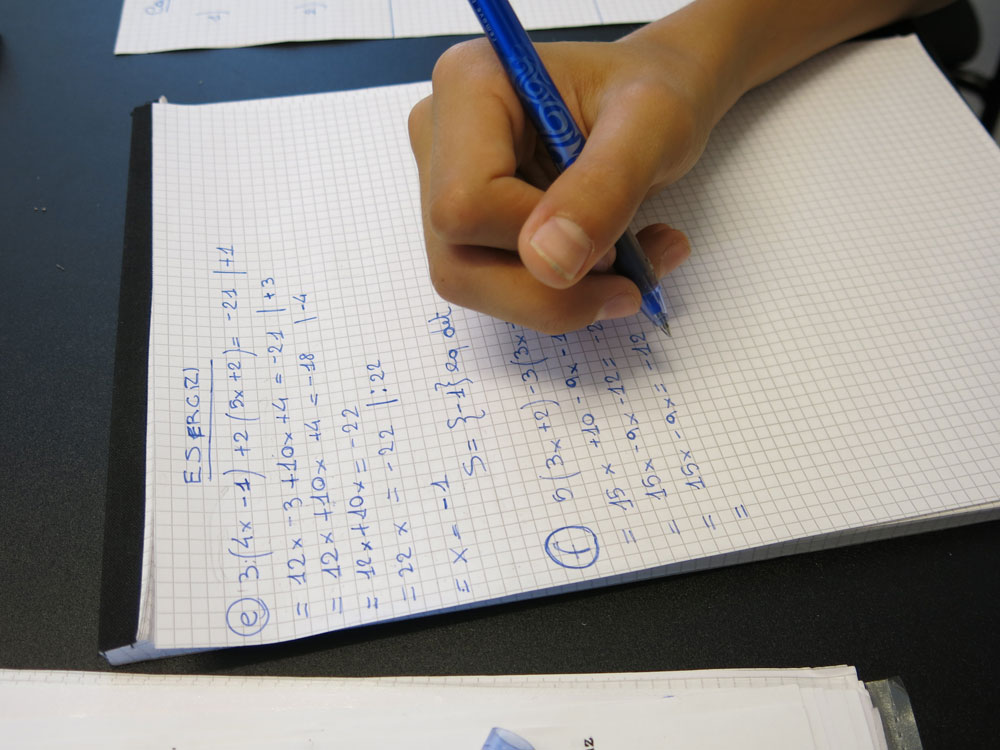 ESERCIZI
e 3·(4x-1)+2(5x+2)= -21 |+1
= 12x-3+10x+4=-21 |+3
= 12x+10x+4=-18 |-4
= 12x+10x=-22
= 22x = -22 |:22
= x = -1 S={-1} eq det
f 5(3x+2)-3(3x-
= 15x+10-9x-1
= 15x-9x-12= -2
= 15x-9x=-12
=